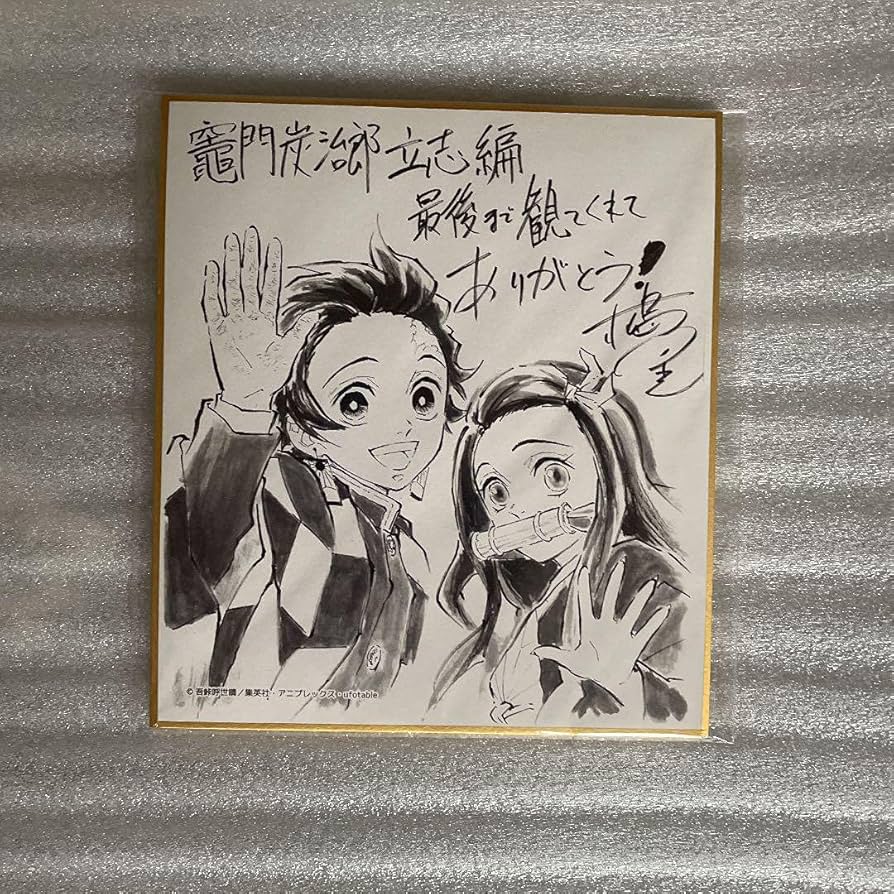 竈門炭治郎 立志編
最後まで観てくれて
ありがとう!
© 吾峠呼世晴／集英社・アニプレックス・ufotable